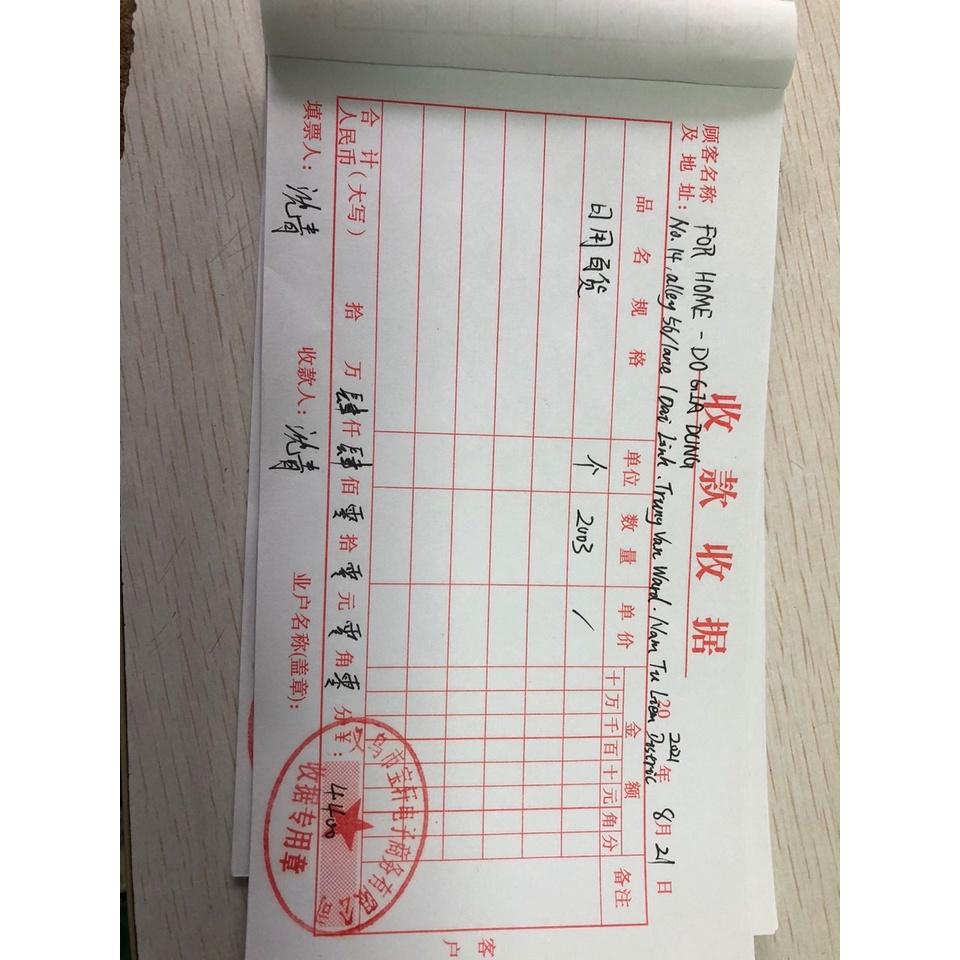 收款收据
2024年 8月 21日
顾客名称 FOR HOME - DO GIA DUNG
及地址: No.14, alley 56/lane 1 Dai Linh. Trung Van Ward. Nam Tu Liem District
品名规格 单位 数量 单价 金额 备注
十万千百十元角分
日用百货 个 2003 /
合计
人民币(大写) 拾 万 肆仟 肆佰 零拾 零元 零角 零分 ¥: 4400
填票人: 沈青 收款人: 沈青 业户名称(盖章):
宝轩电子商务有限公司
收据专用章
客户